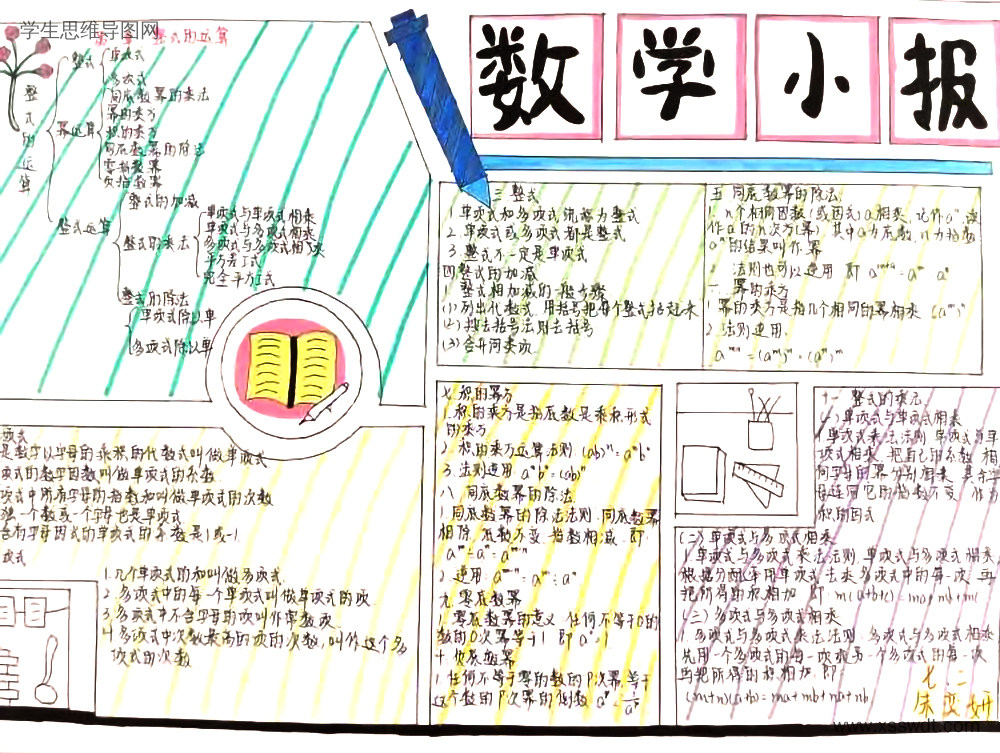 学生思维导图网
数学小报
整式的运算
整式的运算
整式
单项式
多项式
幂运算
同底数幂的乘法
幂的乘方
积的乘方
同底数幂的除法
零指数幂
负指数幂
整式运算
整式的加减
整式的乘法
单项式与单项式相乘
单项式与多项式相乘
多项式与多项式相乘
平方差公式
完全平方公式
整式的除法
单项式除以单
多项式除以单
三 整式
1.单项式和多项式统称为整式
2.单项式或多项式都是整式
3.整式不一定是单项式
四 整式的加减
1.整式相加减的一般步骤
(1)列出代数式 用括号把每个整式括起来
(2)
去括号
(3)合并同类项
五 同底数幂的除法
1. n个相同因数(或因式)a相乘,记作aⁿ,读
作a的n次方(幂) 其中a为底数,n为指数
aⁿ的结果叫作幂
法则也可以逆用 即 aᵐ⁺ⁿ=aᵐ aⁿ
幂的乘方
1 幂的乘方是指几个相同的幂相乘 (aᵐ)ⁿ
2 法则逆用
aᵐⁿ=(aᵐ)ⁿ=(aⁿ)ᵐ
项式
是数字以字母的乘积的代数式叫做单项式
项式的数字因数叫做单项式的系数
项式中所有字母的指数和叫做单项式的次数
独一个数或一个字母也是单项式
含有字母因式的单项式的系数是1或-1
项式
1.几个单项式的和叫做多项式
2.多项式中的每一个单项式叫做单项式的项
3.多项式中不含字母的项叫作常数项
4.多项式中次数最高的项的次数,叫作这个多
项式的次数
七 积的幂方
1.积的乘方是指底数是乘积形式
的乘方
2.积的乘方运算法则 (ab)ⁿ=aⁿbⁿ
3.法则逆用 aⁿbⁿ=(ab)ⁿ
八 同底数幂的除法
1 同底数幂的除法法则 同底数幂
相除 底数不变 指数相减 即
aᵐ÷aⁿ=aᵐ⁻ⁿ
2.逆用 aᵐ⁻ⁿ=aᵐ÷aⁿ
九 零底数幂
1 零底数幂的意义 任何不等于0的
数的0次幂等于1 即a⁰=1
十 负底数幂
1.任何不等于零的数的P次幂,等于
这个数的P次幂的倒数
十一 整式的乘法
(一)单项式与单项式相乘
1 单项式乘法法则 单项式与单
项式相乘 把自己的系数 相
同字母的幂分别相乘 其余字
母连同它的指数不变 作为
积的因式
(二)单项式与多项式相乘
1 单项式与多项式乘法法则 单项式与多项式相乘
根据分配率用单项式去乘多项式中的每一项 再
把所得的积相加 即:m(a+b+c)=ma+mb+mc
(三)多项式与多项式相乘
1.多项式与多项式乘法法则 多项式与多项式相乘
先用一个多项式的每一项乘另一个多项式的每一项
再把所得的积相加 即
(m+n)(a+b)=ma+mb+na+nb
七.二
朱奕妍
www.xsswdt.com